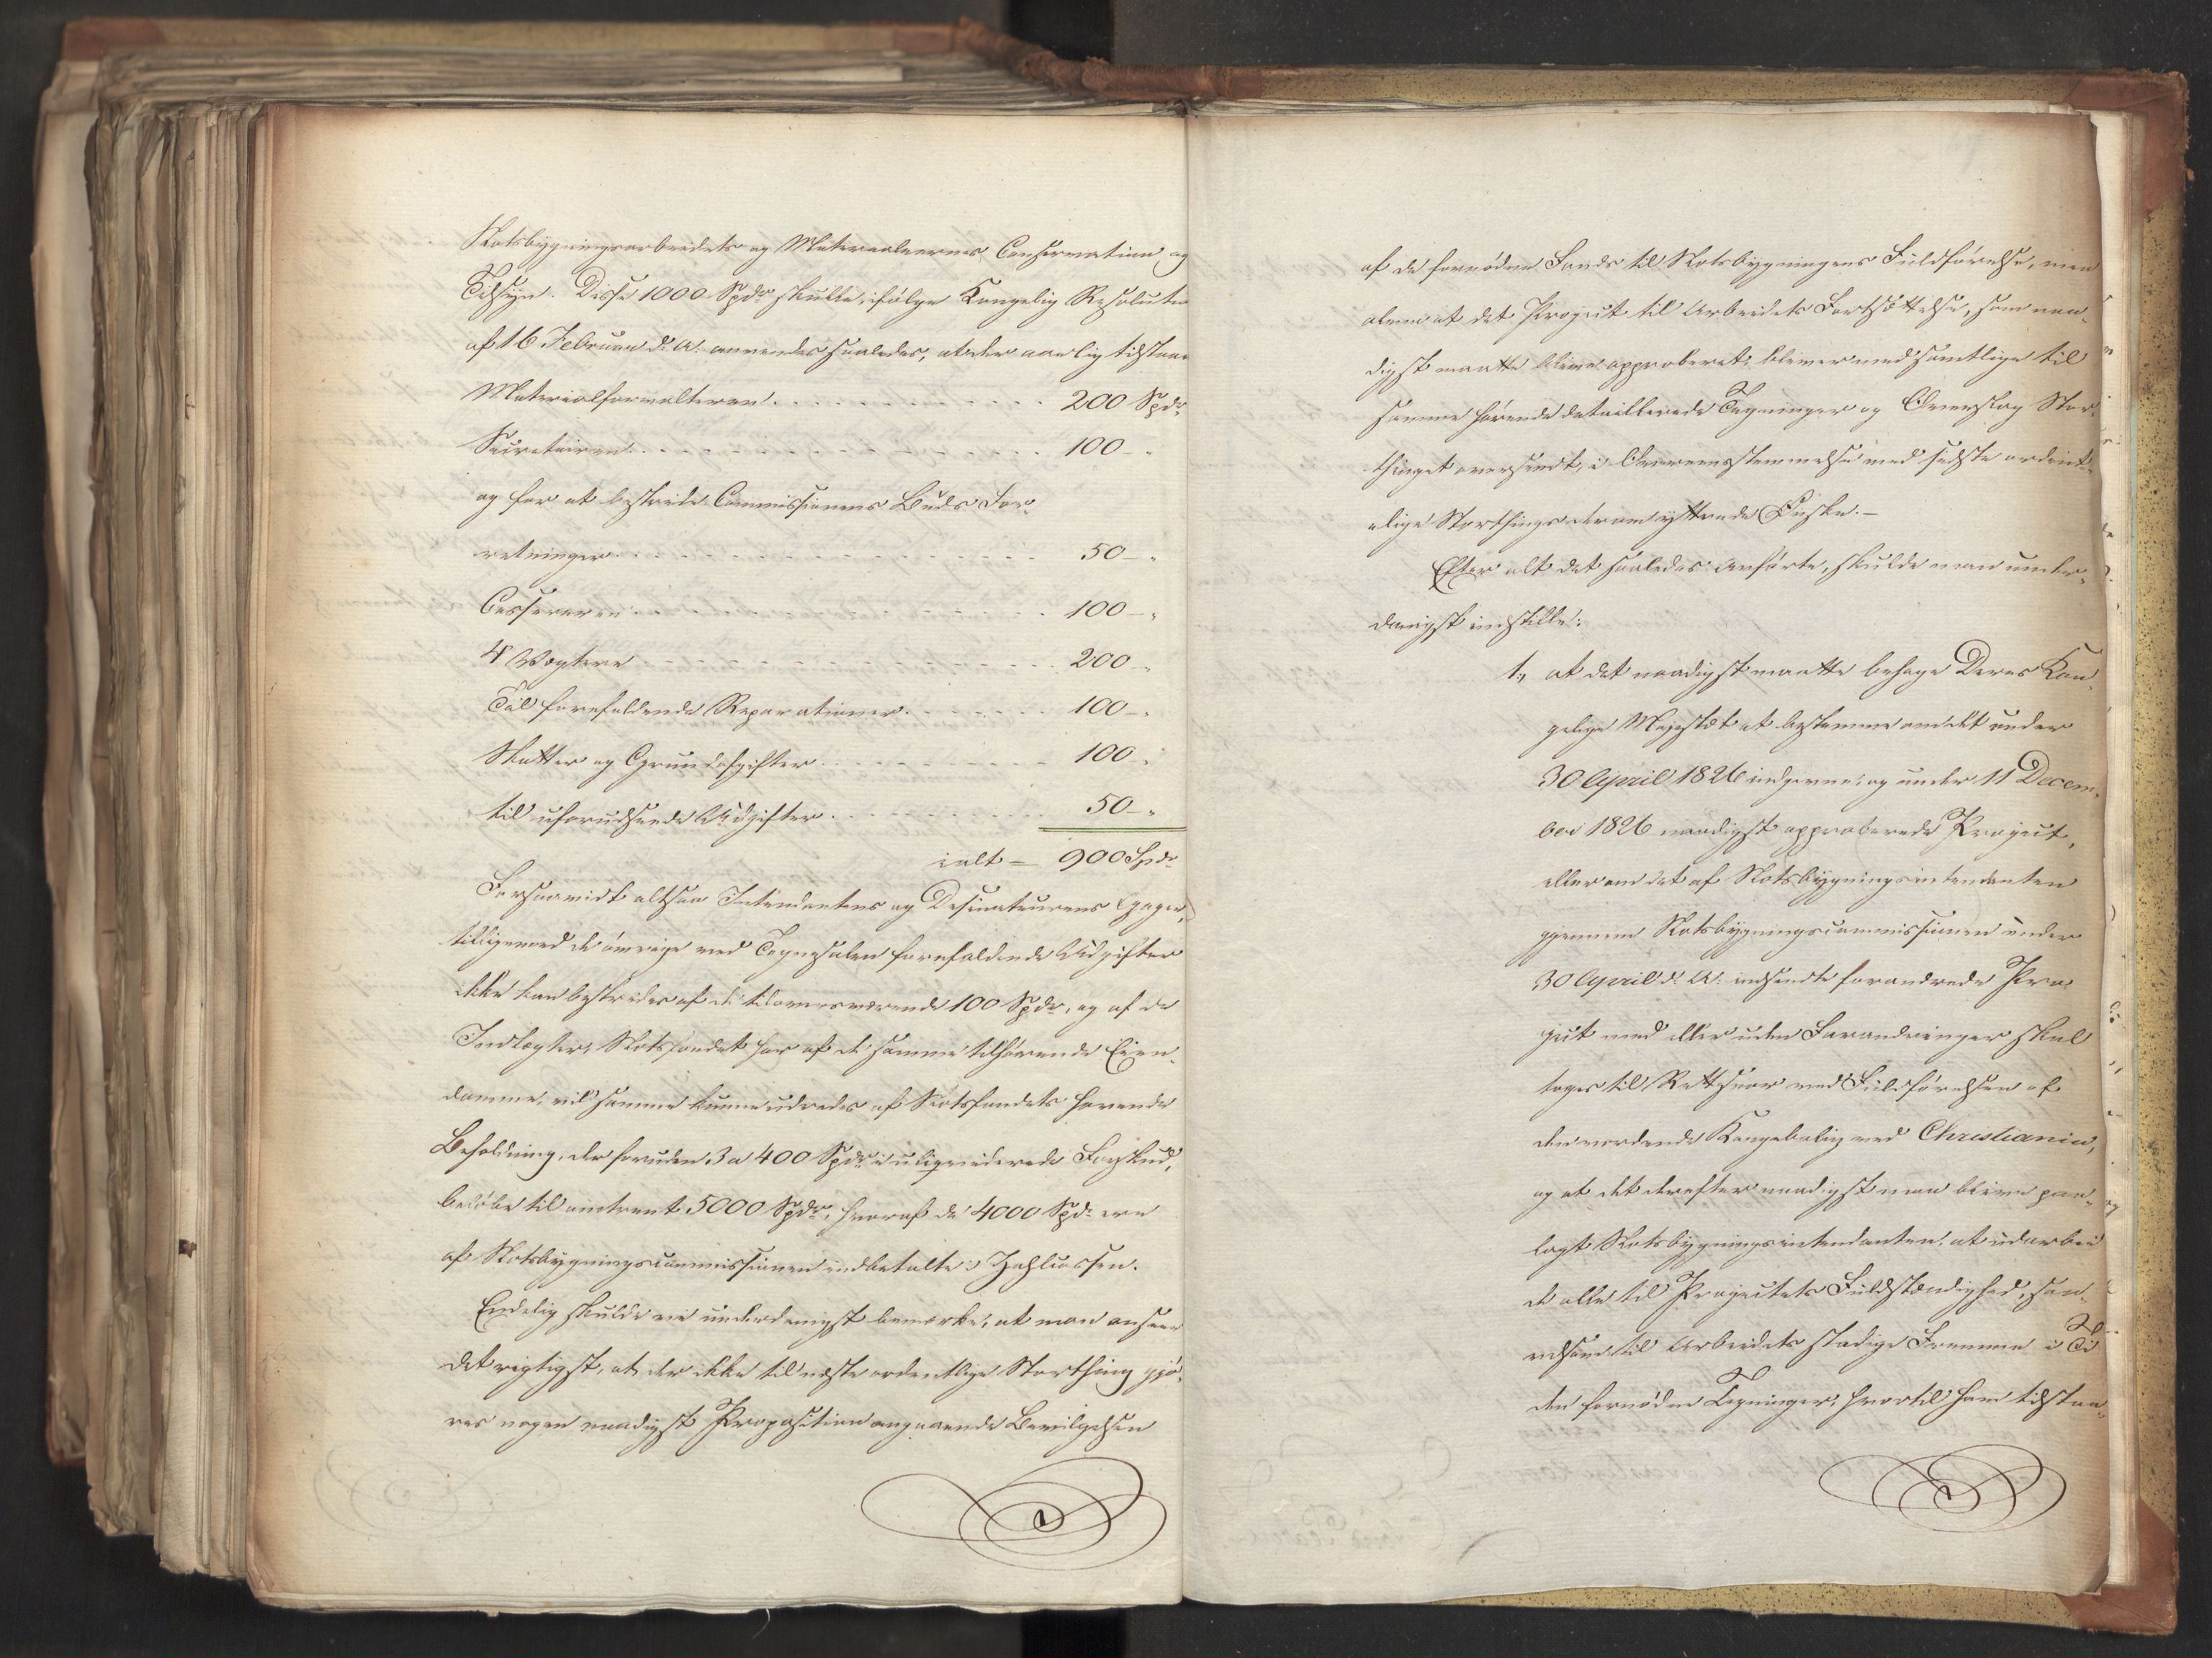 Slotsbygningsarbeidets og Materialernes Conservation og
Tilsyn. Disse 1000 Spdr skulle, ifølge Kongelig Resolution
af 16 Februar d. A. anvendes saaledes, at der aarlig tilstaaes
Materialforvalteren . . . 200 Spdr
Secretairen . . . 100 - "
og for at bestride Commissionens Buds For-
retninger . . . 50 - "
Cassereren . . . 100 - "
4 Vægtere . . . 200 - "
Til forefaldende Reparationer . . . 100 - "
Skatter og Grundafgifter . . . 100 "
til uforudseede Udgifter . . . 50 - "
ialt = 900 Spdr
Forsaavidt altsaa Intendantens og Desinateurens Gager,
tilligemed de øvrige ved Tegnesalen forefaldende Udgifter
ikke kan bestrides af de tiloversværende 100 Spdr, og af de
Indtægter, Slotsfondet har af de samme tilhørende Eien-
domme, vil samme kunne udredes af Slotsfondets havende
Beholdning, der foruden 3 a 400 Spdr i uliqviderede Forskud,
beløbe til omtrent 5000 Spdr, hvoraf de 4000 Spdr ere
af Slotsbygningscommissionen indbetalte i Zahlcassen.
Endelig skulde vi underdanigst bemærke, at man anseer
det rigtigst, at der ikke til næste ordentlige Storthing gjø-
res nogen naadigst Proposition angaaende Bevilgelsen
af de fornødne Fonds til Slotsbygningens Fuldførelse, men
alene at det Project til Arbeidets Fortsættelse, som naa-
digst maatte blive approberet, bliver med samtlige til
samme hørende detaillerede Tegninger og Overslag Stor-
thinget oversendt, i Overeensstemmelse med sidste ordent-
elige Storthings derom yttrede Ønske. -
Efter alt det saaledes Anførte, skulde man under-
danigst indstille:
1, at det naadigst maatte behage Deres Kon-
gelige Majestæt at bestemme om det under
30 April 1826 indgivne, og under 11 Decem-
ber 1826 naadigst approberede Project,
eller om det af Slotsbygningsintendanten
gjennem Slotsbygningscommissionen under
30 April d. A. indsendte forandrede Pro-
ject med eller uden Forandringer skal
tages til Rettesnor ved Fuldførelsen af
den vordende Kongebolig ved Christiania,
og at det derefter naadigst maa blive paa-
lagt Slotsbygningsintendanten, at udarbei
de alle til Projectets Fuldstændighed, saa-
velsom til Arbeidets stadige Fremme i Ti
den fornødne Tegninger, hvortil ham tilstaa-